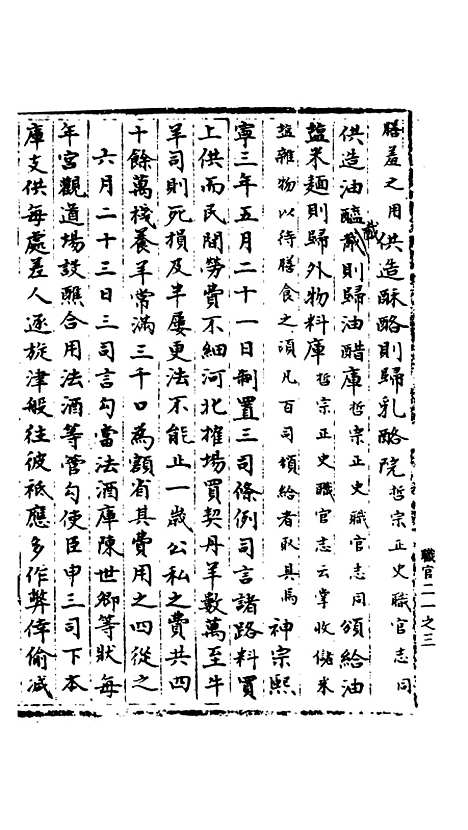 膳羞之用供造酥酪則歸乳酪院哲宗正史職官志同
供造油醯醎則歸油醋庫哲宗正史職官志同頒給油
鹽米麵則歸外物料庫哲宗正史職官志云掌收儲米
鹽雜物以待膳食之湏凡百司湏給者取具焉神宗熙
寧三年五月二十一日制置三司條例司言諸路科買
上供而民間勞費不細河北榷場買契丹羊數萬至牛
羊司則死損及半屢更法不能止一歲公私之費共四
十餘萬棧養羊常滿三千口為額省其費用之四從之
六月二十三日三司言勾當法酒庫陳世卿等狀每
年宮觀道場設醮合用法酒等管勾使臣申三司下本
庫支供每處差人逐旋津般往彼祗應多作弊倖偷减
職官二一之三